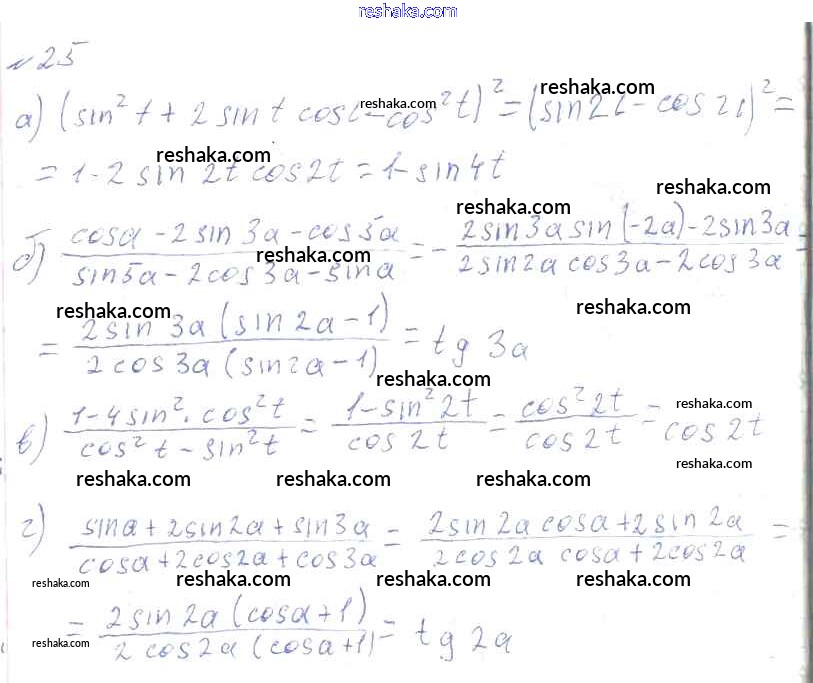 reshaka.com
№ 25
reshaka.com
а) (sin² t + 2 sin t cos t - cos² t)² = (sin 2t - cos 2t)² =
reshaka.com
= 1 - 2 sin 2t cos 2t = 1 - sin 4t
reshaka.com
reshaka.com
reshaka.com
б) (cos a - 2 sin 3a - cos 5a) / (sin 5a - 2 cos 3a - sin a) = - (2 sin 3a sin (-2a) - 2 sin 3a) / (2 sin 2a cos 3a - 2 cos 3a) =
reshaka.com
reshaka.com
reshaka.com
= 2 sin 3a (sin 2a - 1) / 2 cos 3a (sin 2a - 1) = tg 3a
reshaka.com
reshaka.com
в) (1 - 4 sin² · cos² t) / (cos² t - sin² t) = (1 - sin² 2t) / cos 2t = cos² 2t / cos 2t = cos 2t
reshaka.com
reshaka.com reshaka.com reshaka.com
г) (sin a + 2 sin 2a + sin 3a) / (cos a + 2 cos 2a + cos 3a) = (2 sin 2a cos a + 2 sin 2a) / (2 cos 2a cos a + 2 cos 2a) =
reshaka.com reshaka.com reshaka.com reshaka.com
= 2 sin 2a (cos a + 1) / 2 cos 2a (cos a + 1) = tg 2a
reshaka.com